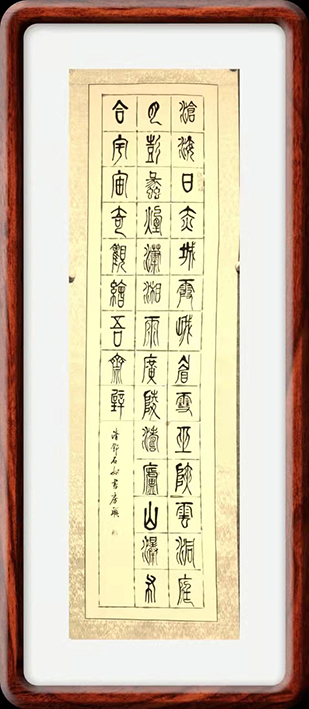 滄海日赤城霞峨眉雪巫峽雲洞庭
月彭蠡煙瀟湘雨廣陵濤廬山瀑布
合宇宙奇觀繪吾齋壁
清鄧石如書房聯